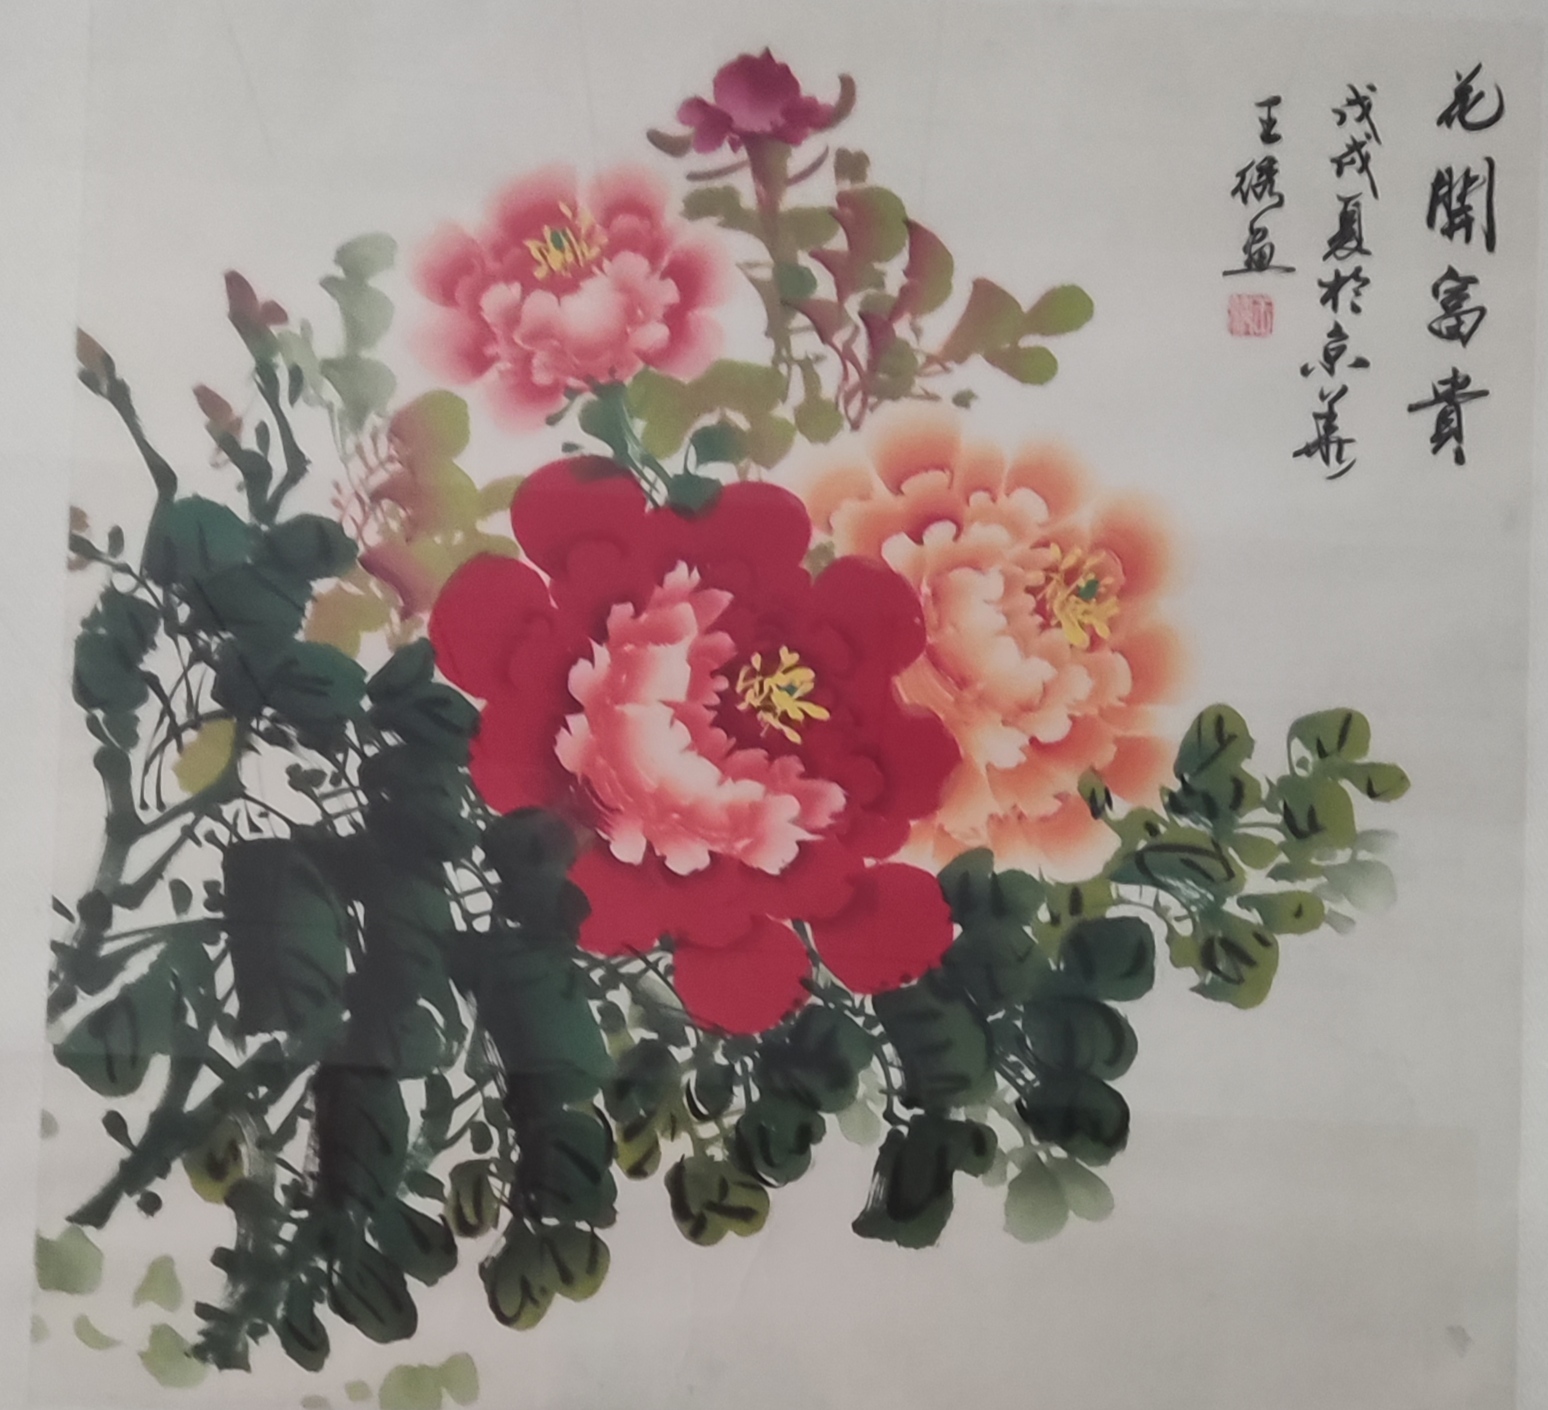 花開富貴
戊戌夏於京華
王绣画